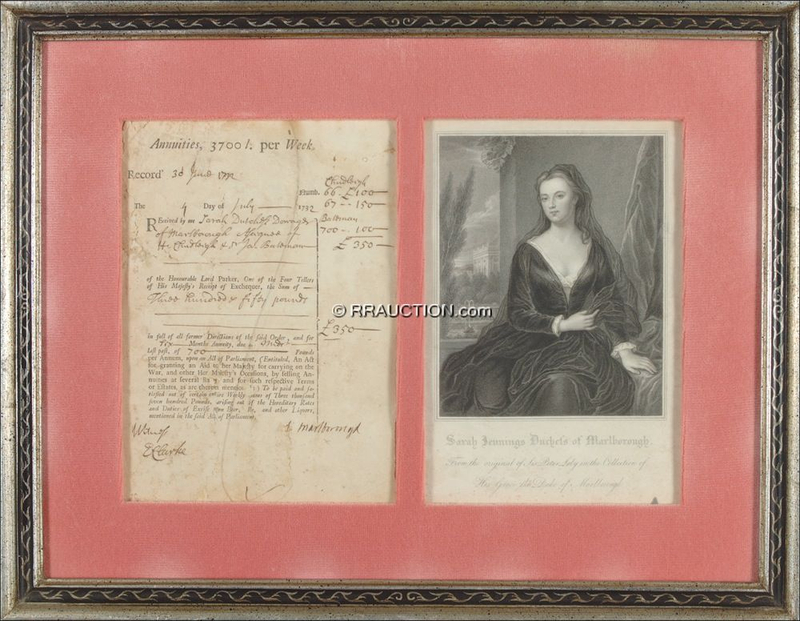 Annuities, 3700 l. per Week.
Record 30 June 1732
Chudleigh
Numb. 66 - £ 100
67 - - 150
The 4 Day of July 1732
Bateman
700 - - 100
£ 350
REceived by me Sarah Dutchess Dowager
of Marlborough Assignee of
H. Chudleigh & Jas. Bateman
of the Honourable Lord Parker, One of the Four Tellers
of His Majesty's Receipt of Exchequer, the Sum of
Three hundred & fifty pounds
£ 350
In full of all former Directions of the said Order, and for
Six Months Annuity, due at
last past, of 700 Pounds
per Annum, upon an Act of Parliament, (Entituled, An Act
for granting an Aid to her Majesty for carrying on the
War, and other Her Majesty's Occasions, by selling An-
nuities at several Rates, and for such respective Terms
or Estates, as are therein mention'd;) To be paid and sa-
tisfied out of certain entire Weekly Sums of Three thousand
seven hundred Pounds, arising out of the Hereditary Rates
and Duties of Excise upon Beer, Ale, and other Liquors,
mentioned in the said Act of Parliament.
S Marlborough
E Clarke
Sarah Jennings Duchess of Marlborough.
From the original of Sir Peter Lely in the Collection of
His Grace the Duke of Marlborough
© RRAUCTION.com